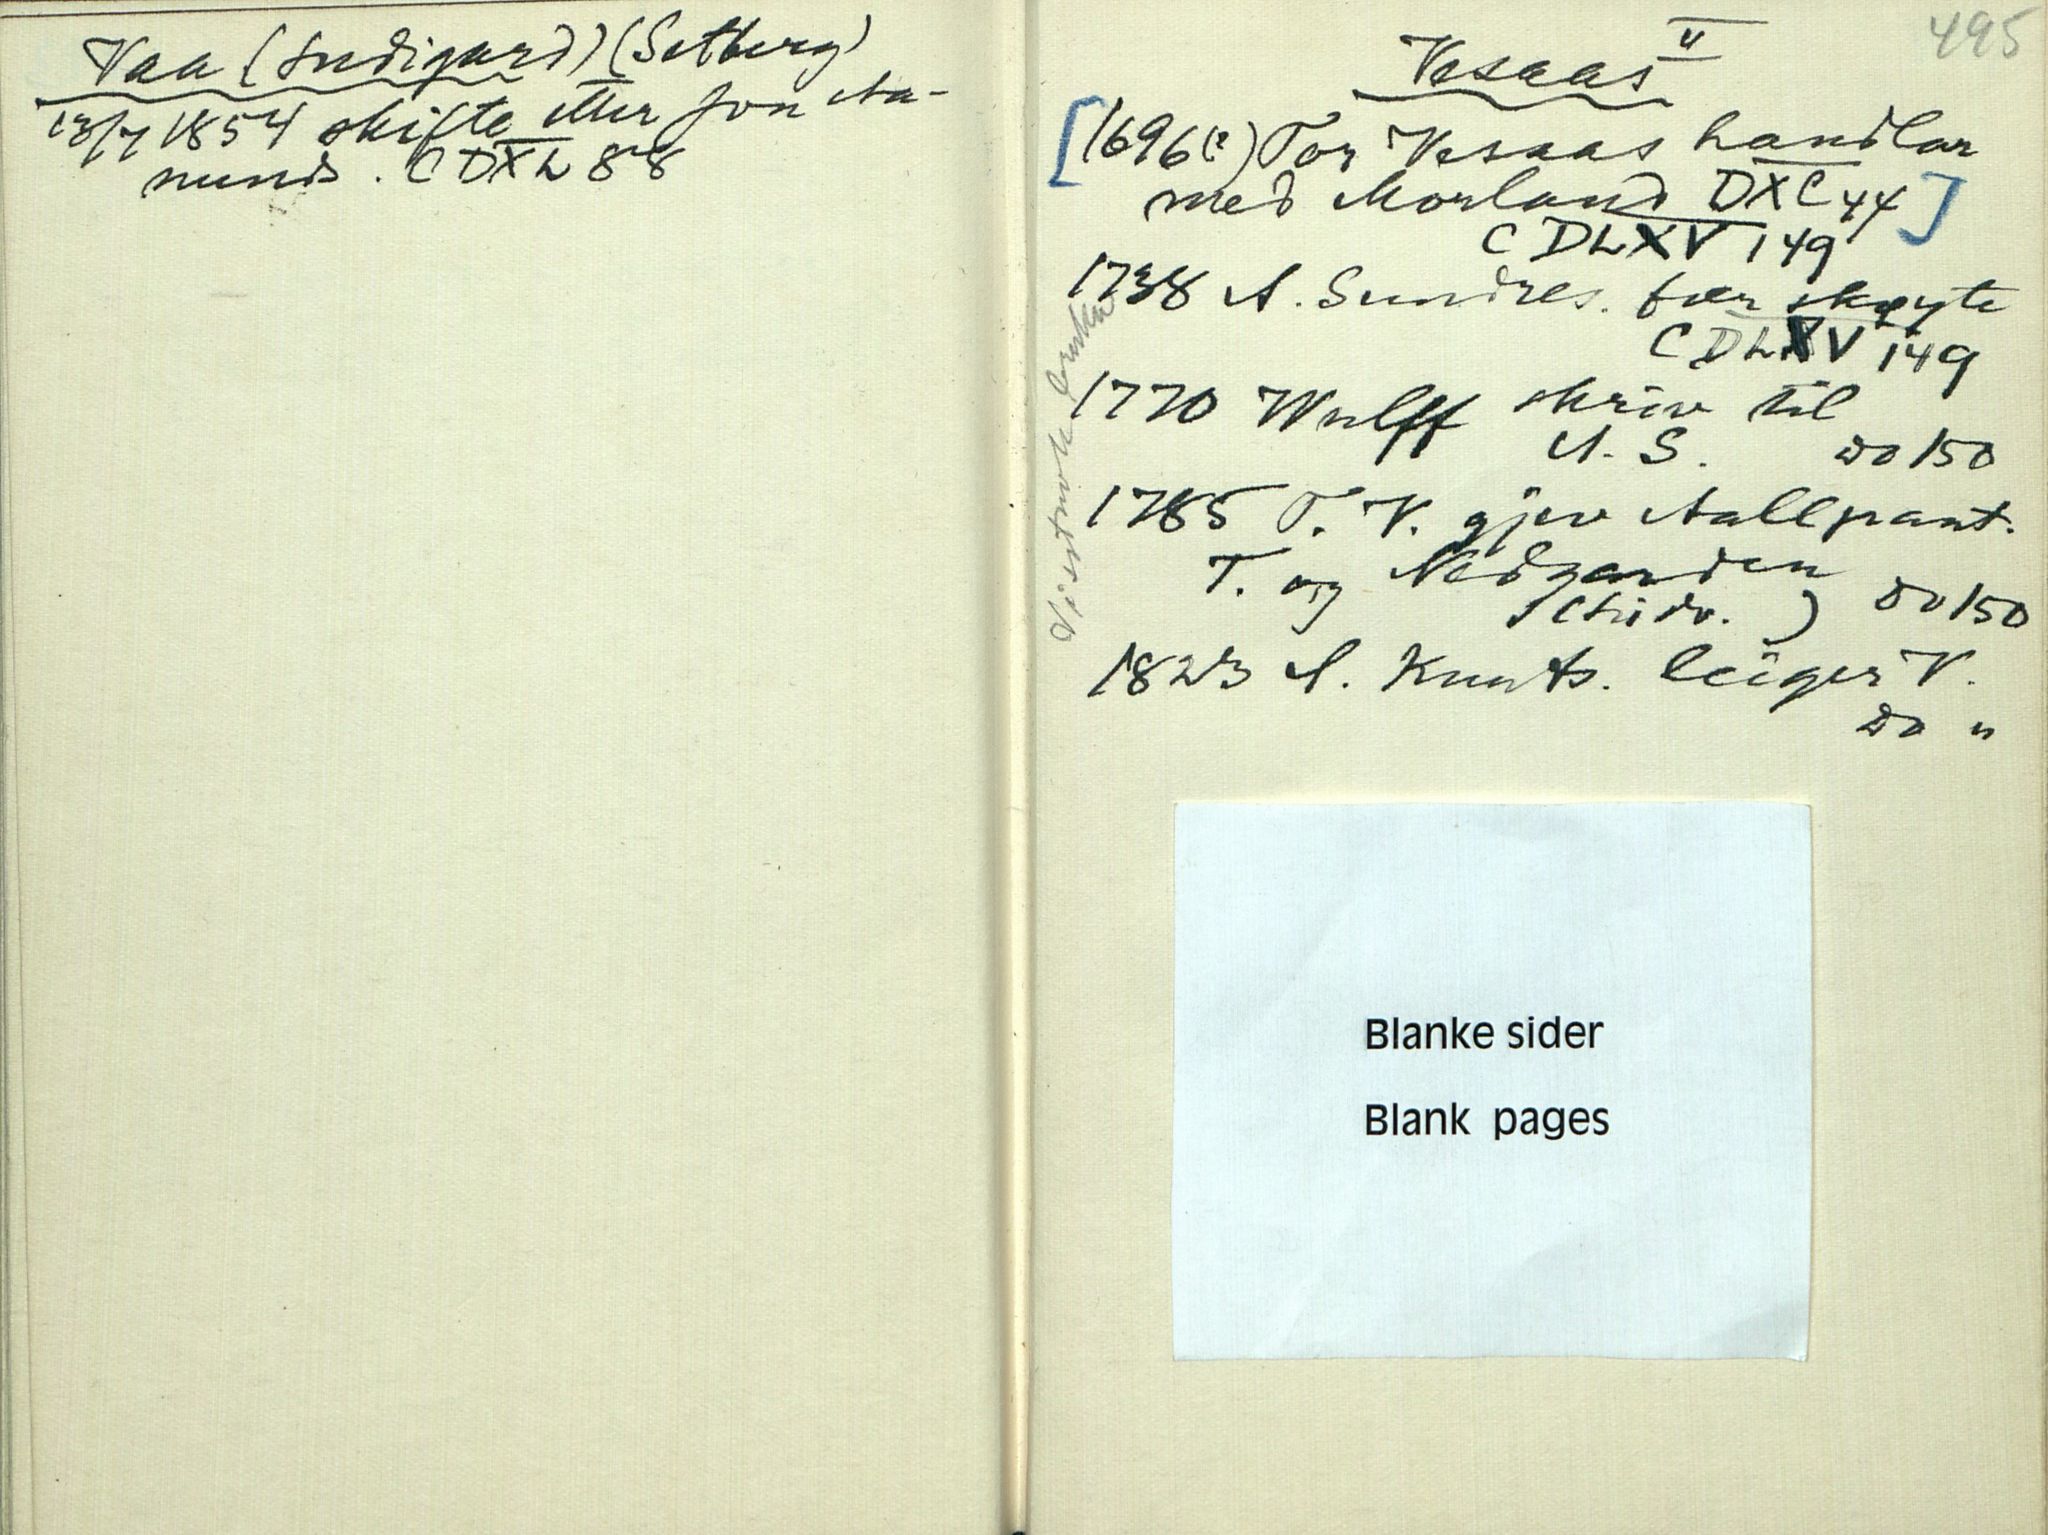 Vaa (Sudigard) (Setberg)
13/7 1854 skifte etter Jon Aa-
munds. CDXL 88
495
Vesaas II
[1696(?) Tor Vesaas handlar
med Morland DXC 44]
CDLXV 149
1738 A. Sundres. fær skøyte
CDLXV 149
1770 Wulff skriv til
A. S. do 150
1785 T. V. gjev Aall pant.
T. og Nedgarden
do 150
1823 A. Knuts. leiger V.
do "
Blanke sider
Blank pages